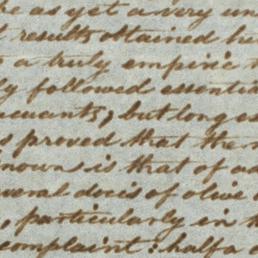 be as yet a very un
t results obtained he
a truly empiric
ly followed essentia
cuants, but long es
s proved that the
nown is that of ad
veral docis of olive
, particularly in t
complaint: half a